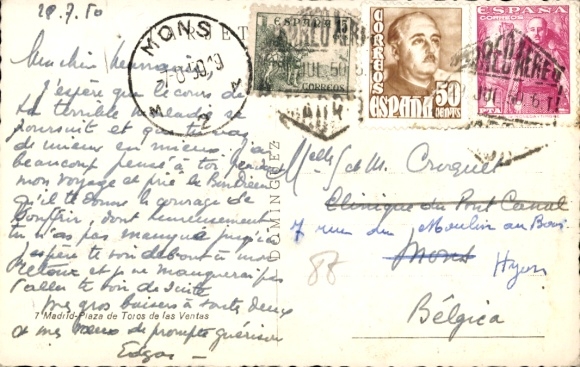 28.7.50
Ma chère
J'espère que le cours de
ta terrible maladie se
poursuit et que tu vas
de mieux en mieux. J'ai
beaucoup pensé à toi pendant
mon voyage et prié le Bon Dieu
qu'il te donne le courage de
souffrir, dont heureusement
tu n'as pas manqué jusqu'ici
J'espère te voir debout à mon
retour et je ne manquerai pas
d'aller te voir de suite
Mes gros baisers à toutes deux
et mes vœux de prompte guérison
Edgar
7 Madrid-Plaza de Toros de las Ventas
DOMINGUEZ
MONS
2
ESPAÑA
CORREOS
CORREOS
ESPAÑA
50
CENTS
ESPAÑA
CORREOS
1
PTA
CORREO AEREO
CORREO AEREO
Melle S et M. Croquet
Clinique du Pont Canal
7 rue du Moulin au Bois
Mons
Hyon
88
Bélgica